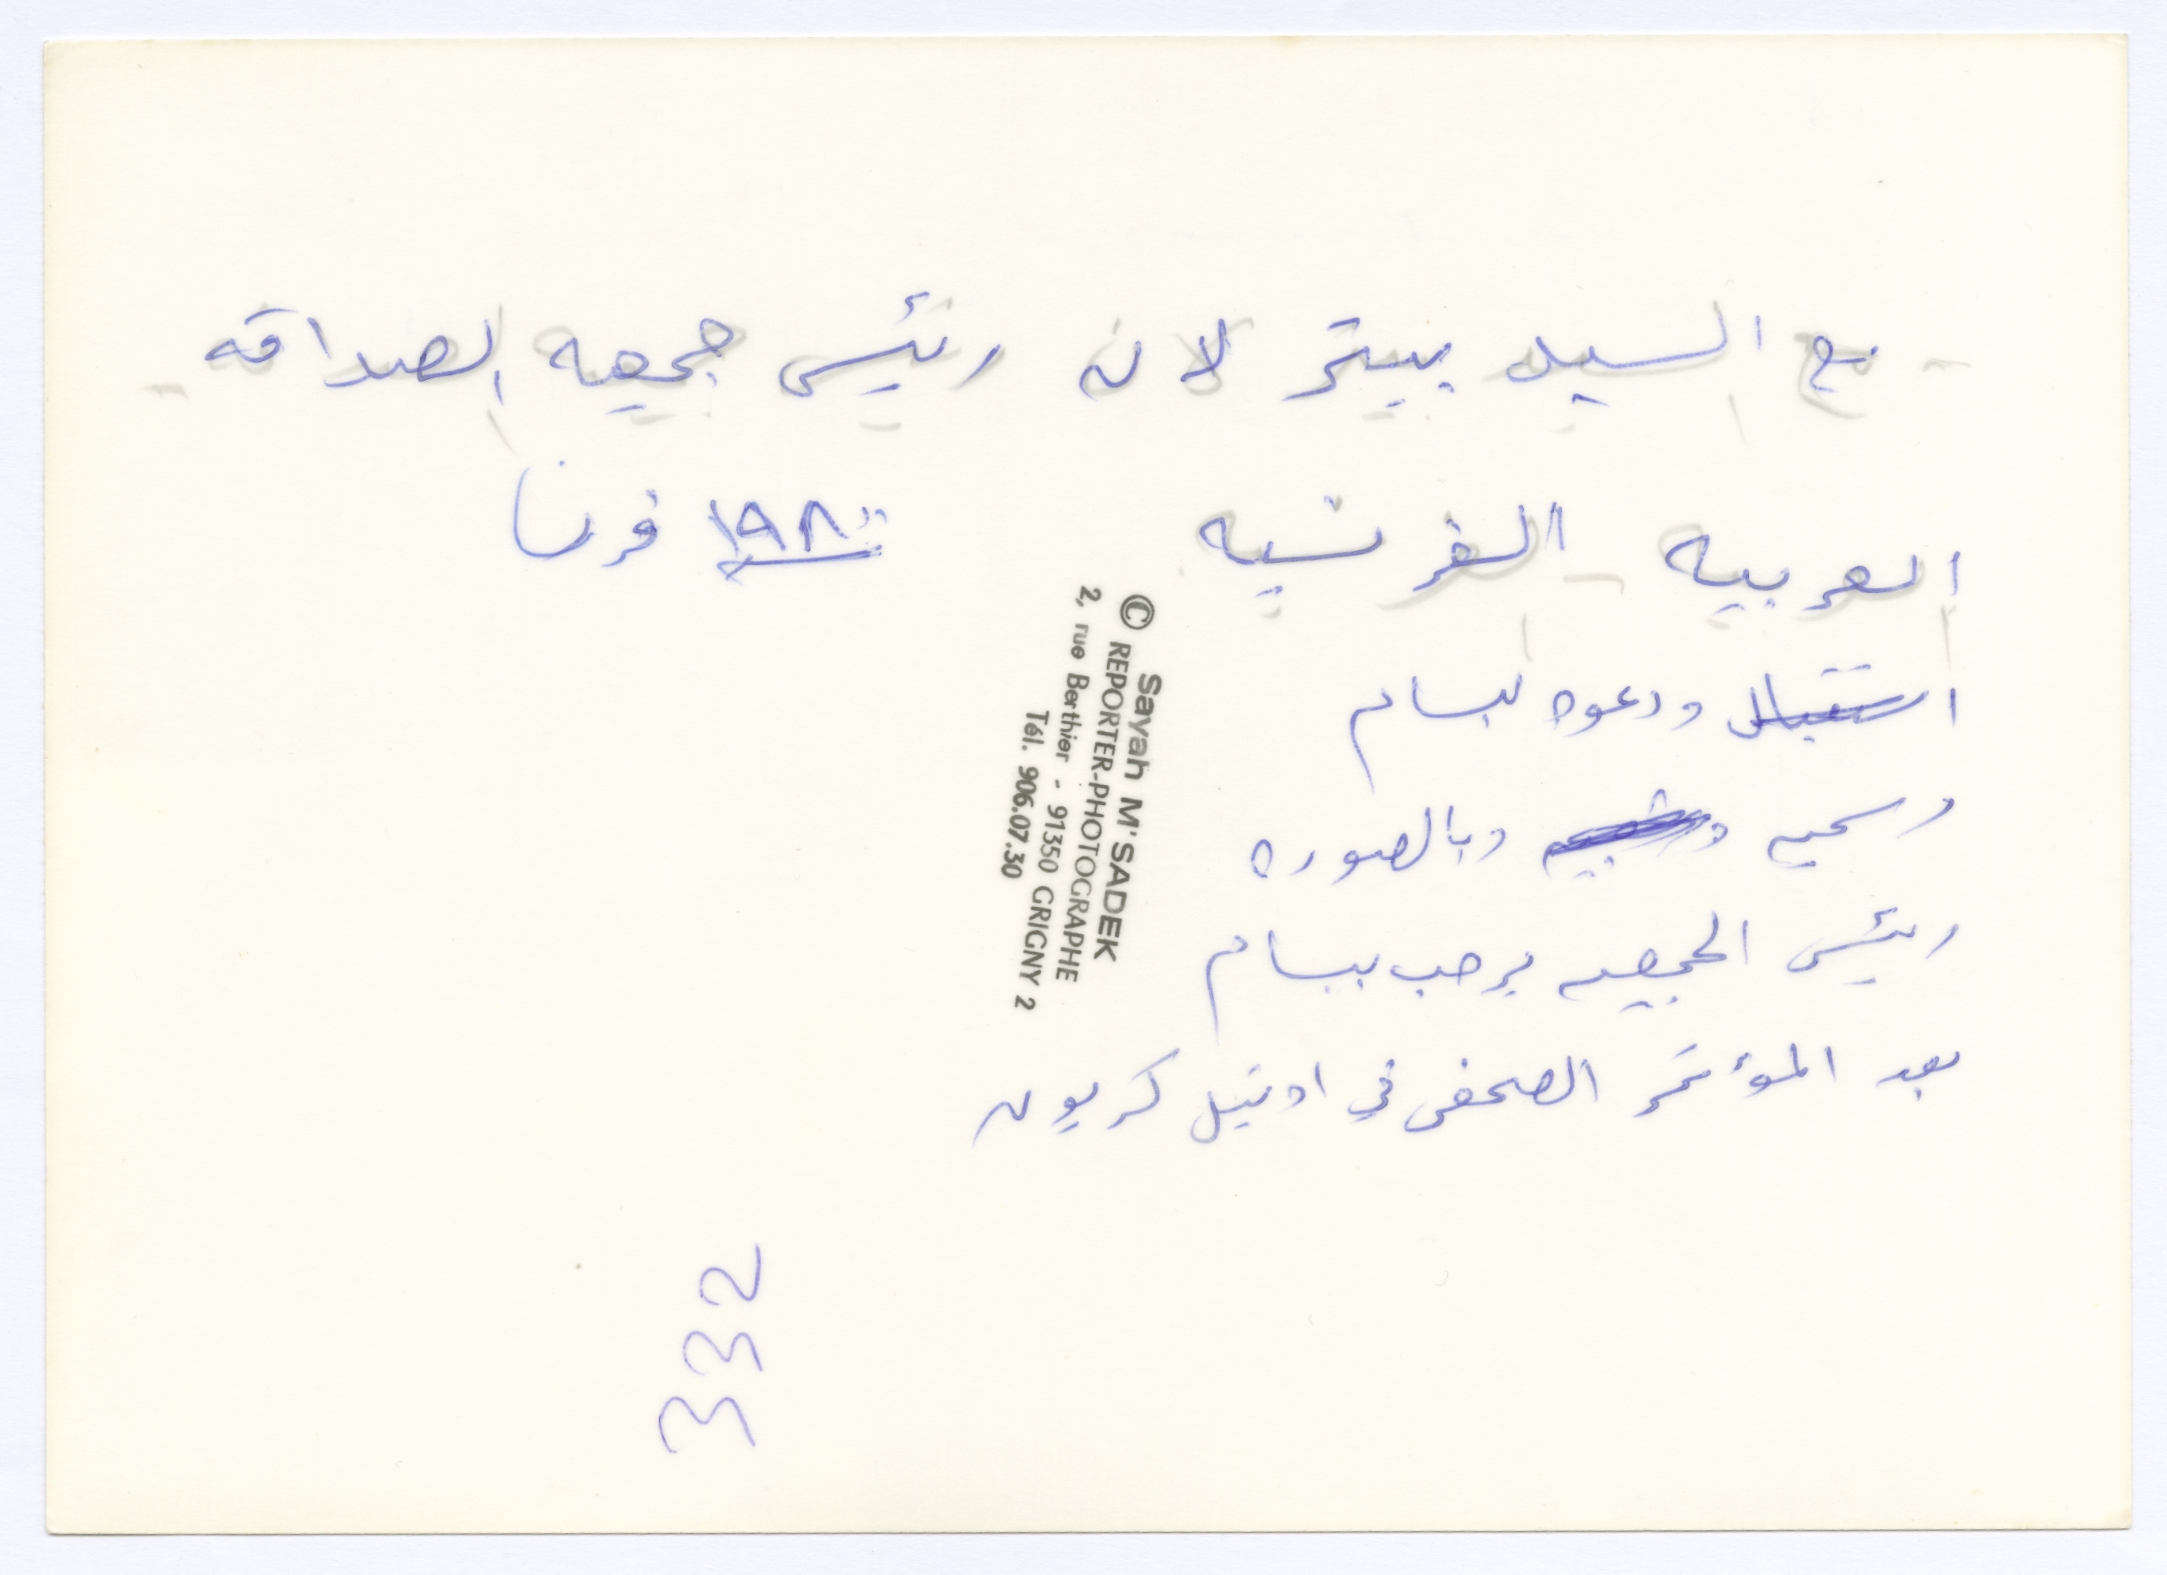 مع السيد بيتر لان رئيس جمعيه الصداقه
العربيه - الفرنسيه ١٩٨ فرنسا
استقبال ودعوه لبسام
رسميه وبالصوره
رئيس الجمعيه يرحب ببسام
بعد المؤتمر الصحفي في اوتيل كريون
© Sayah M'SADEK
REPORTER-PHOTOGRAPHE
2, rue Berthier - 91350 GRIGNY 2
Tél. 906.07.30
332